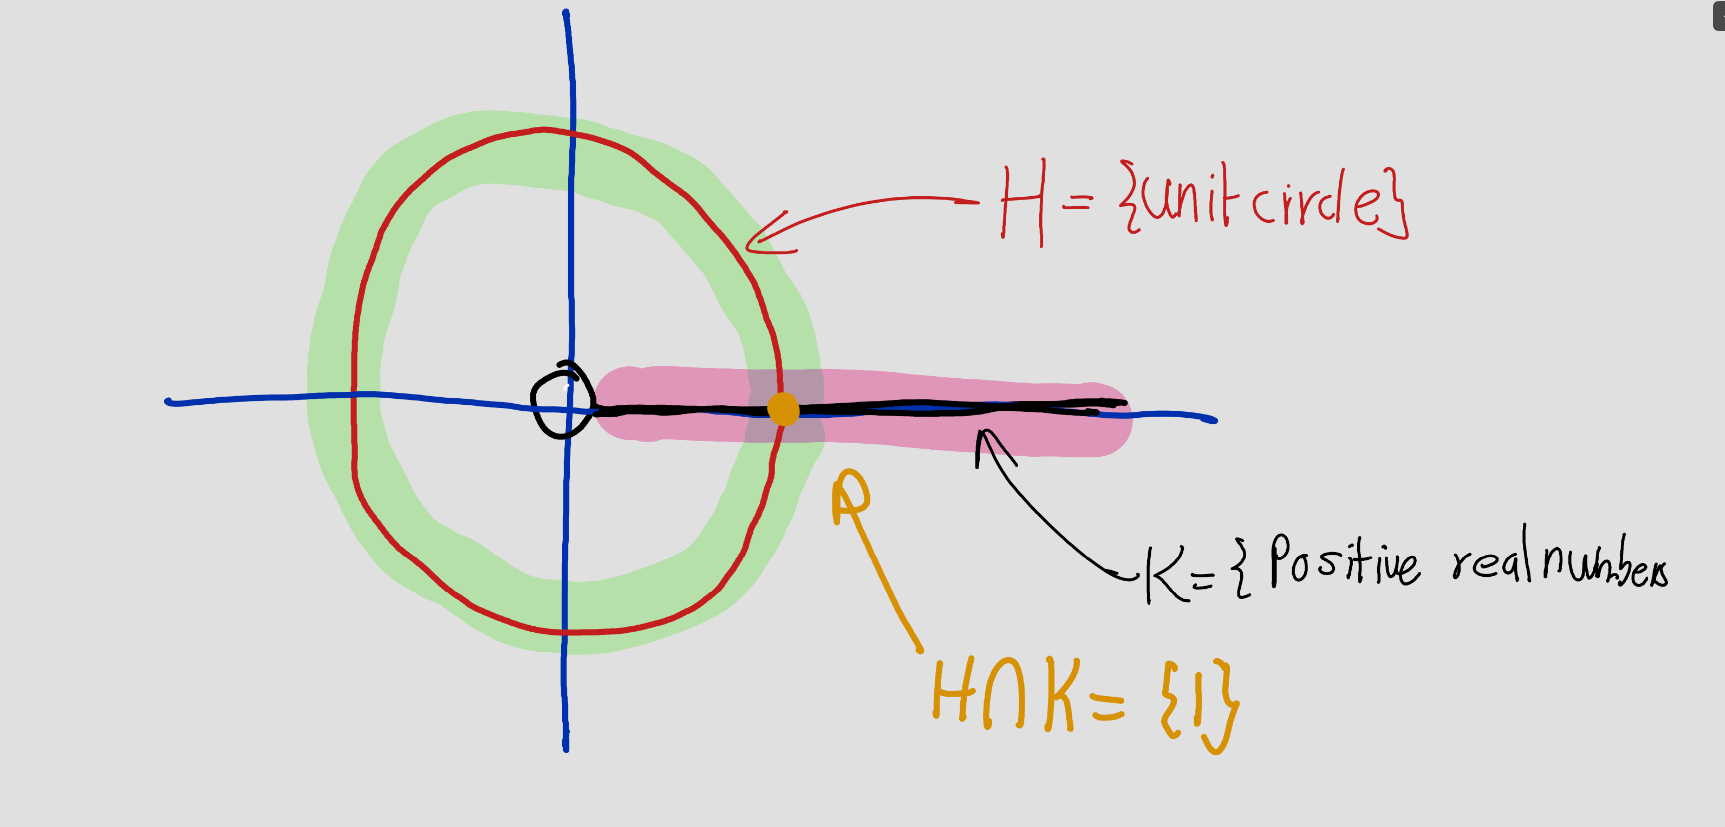 H = {unit circle}
K = { Positive real numbers
H∩K = {1}